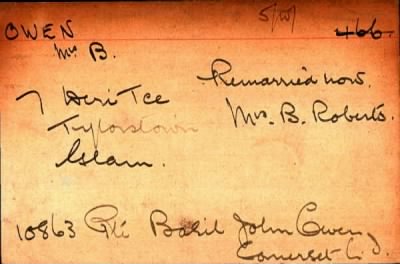 5/W/ 466
OWEN
Mrs B.
Remarried now.
7 Heri Tce Mrs. B. Roberts.
Tylorstown
Glam.
10863 Pte Basil John Owen
Somerset L.I.